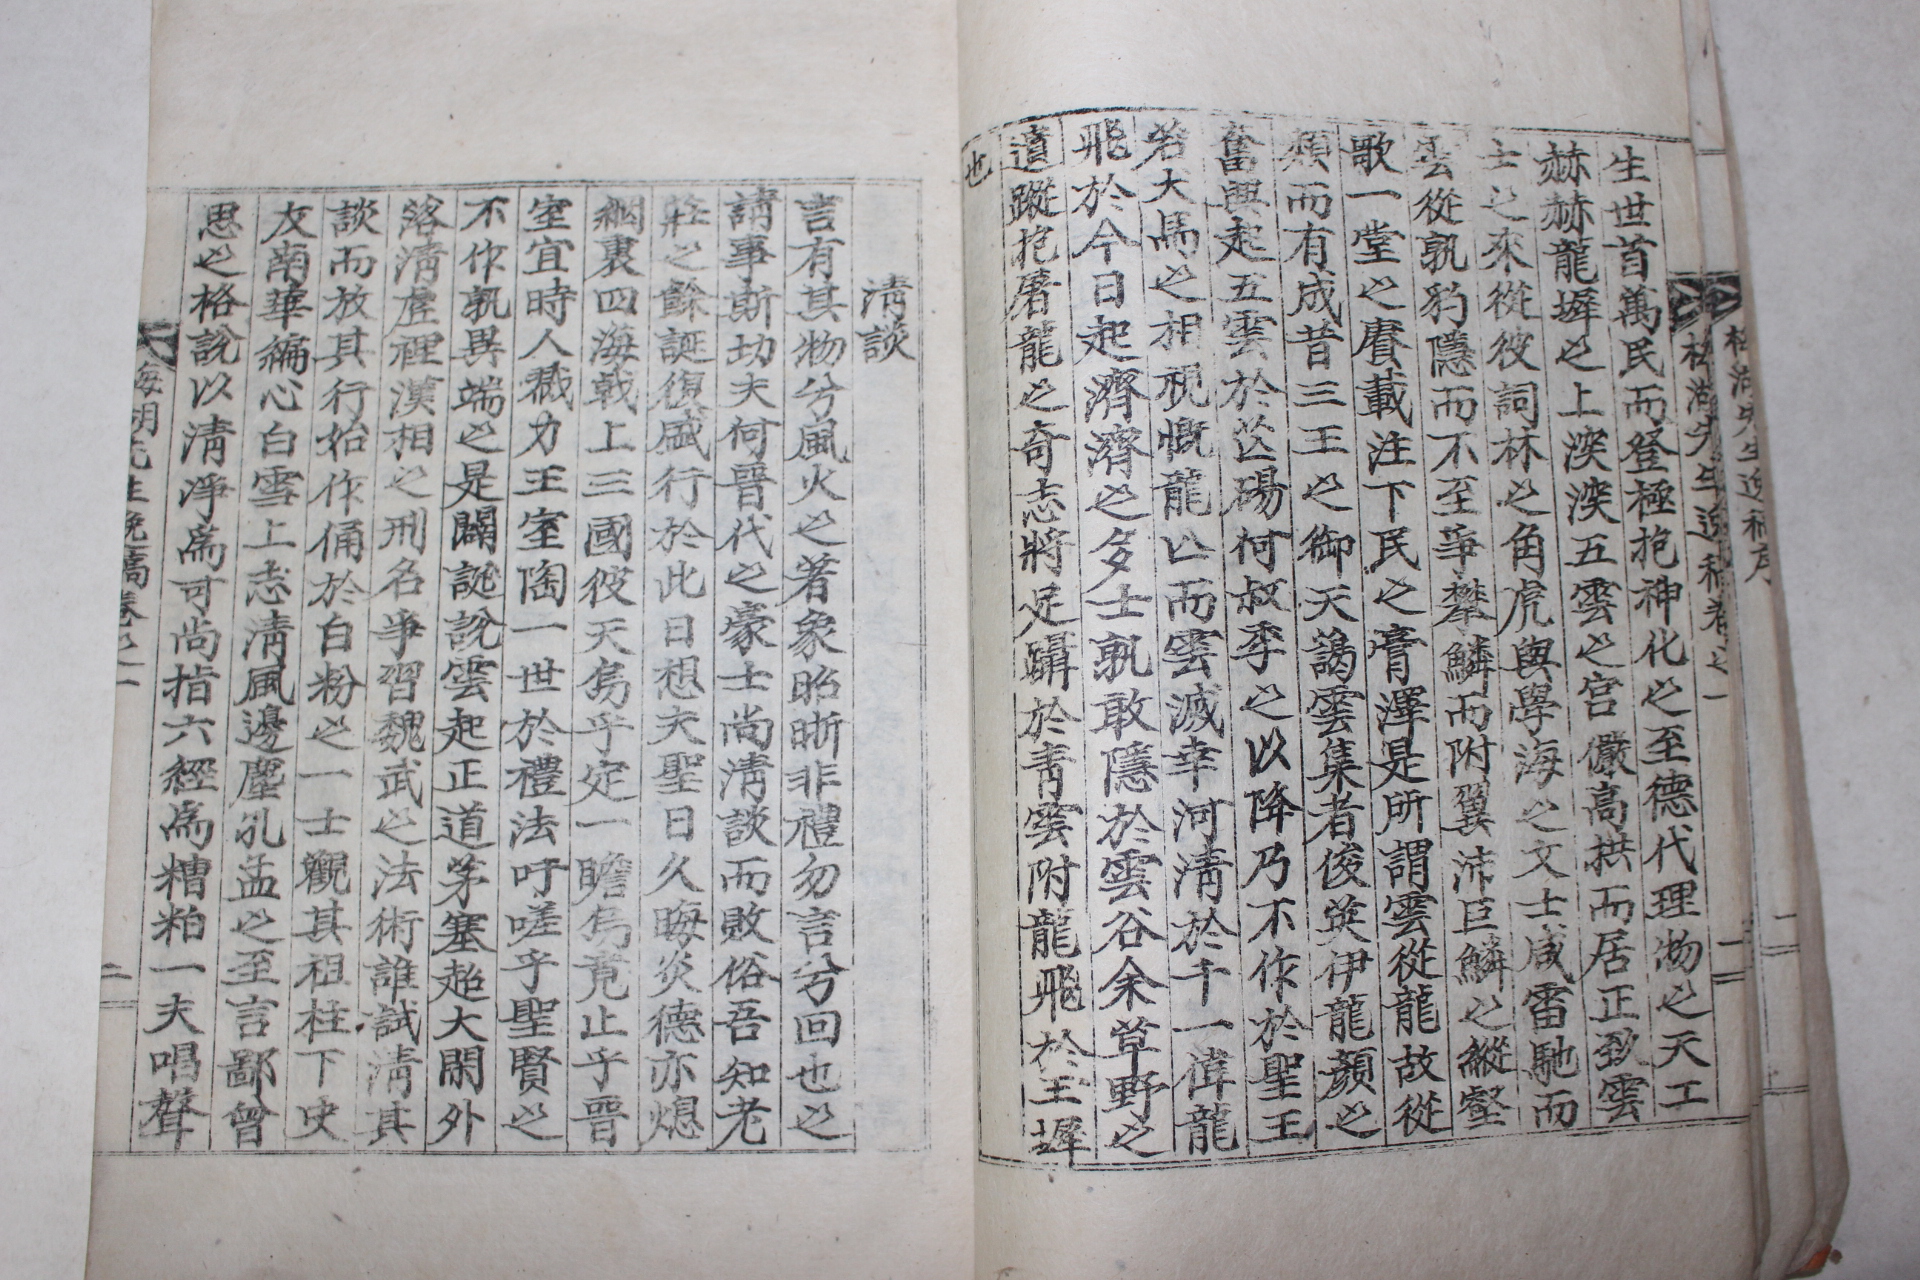 生世首萬民而登極抱神化之至德代理物之天工
赫赫龍墀之上深深五雲之宮儼高拱而居正致雲
士之來從彼詞林之角虎與學海之文士咸雷馳而
雲從孰豹隱而不至爭攀鱗而附翼沛巨鱗之縱壑
歌一堂之賡載注下民之膏澤是所謂雲從龍故從
類而有成昔三王之御天藹雲集者俊英伊龍顏之
奮興起五雲於芒碭何叔季之以降乃不作於聖王
若犬馬之相視慨龍亡而雲滅幸河清於千一偉龍
飛於今日起濟濟之多士孰敢隱於雲谷余草野之
遺蹤抱屠龍之奇志將足躡於靑雲附龍飛於玉墀
也
清談
言有其物兮風火之著象昭晰非禮勿言兮回也之
請事斯切夫何晉代之豪士尚清談而敗俗吾知老
莊之餘誕復盛行於此日想夫聖日久晦炎德亦熄
綱裏四海戟上三國彼天烏乎定一瞻烏竟止乎晉
室宜時人戮力王室陶一世於禮法吁嗟乎聖賢之
不作孰異端之是闢誕說雲起正道茅塞超大閑外
落清虛裡漢相之刑名爭習魏武之法術誰試清其
談而放其行始作俑於白粉之一士觀其祖柱下史
友南華編心白雪上志清風邊塵孔孟之至言鄙曾
思之格說以清淨爲可尚指六經爲糟粕一夫唱聲
梅湖先生逸稿卷之一
一
梅湖先生逸稿序
海湖先生逸稿卷之一
二